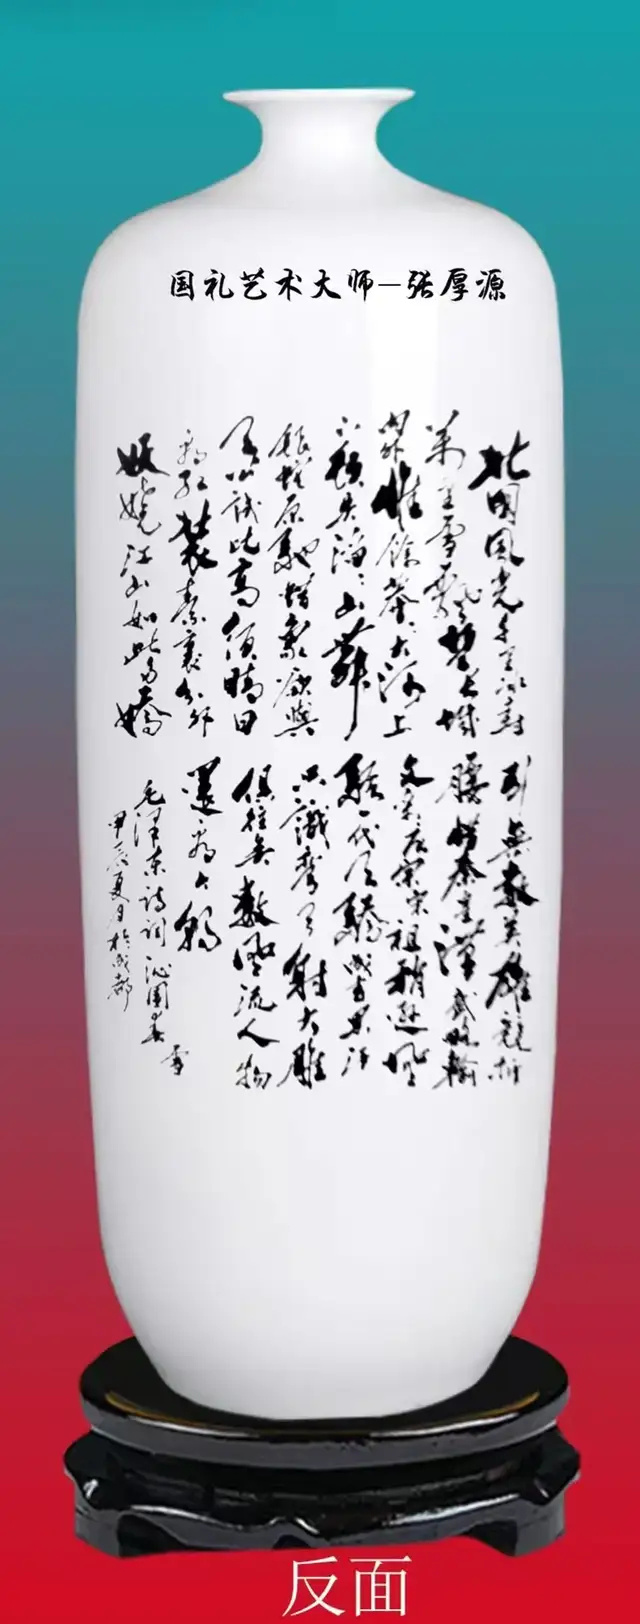 国礼艺术大师—张厚源
北国风光千里冰封
萬里雪飄望长城
内外惟餘莽々大河上
下顿失滔々山舞
银蛇原驰蜡象欲與
天公试比高须晴日
看红装素裹分外
妖娆江山如此多娇
引無數英雄竞折
腰惜秦皇漢武略输
文采唐宗宋祖稍逊风
骚一代天骄成吉思汗
只識弯弓射大雕
俱往矣數風流人物
還看今朝
毛泽东诗词沁园春雪
甲辰夏月於成都
反面